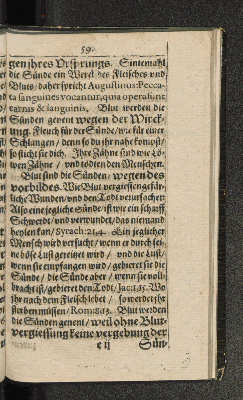 59.
gen jhres Vrsprungs. Sintemahl
die Sünde ein Werck des Fleisches vnd
Bluts / daher spricht Augustinus: Pecca-
ta sanguines vocantur, quia opera sunt
carnis & sanguinis. Blut werden die
Sünden genent wegen der Wirck-
ung. Fleuch für der Sünde / wie für einer
Schlangen / denn so du jhr nahe komst /
so sticht sie dich. Ihre Zähne sind wie Lö-
wen Zähne / vnd tödten den Menschen.
Blut sind die Sünden / wegen des
vorbildes. Wie Blut vergiessen gefär-
liche Wunden / vnd den Todt verursachet
Also eine jegliche Sünde / ist wie ein scharff
Schwerdt / vnd verwundet / das niemand
heylen kan / Syrach: 21.4. Ein jeglicher
Mensch wird versucht / wenn er durch sei-
ne böse Lust gereitzet wird / vnd die Lust /
wenn sie empfangen wird / gebieret sie die
Sünde / die Sünde aber / wenn sie voll-
bracht ist / gebieret den Todt / Jac: 1.15. Wo
jhr nach dem Fleisch lebet / so werdet jhr
sterben müssen / Rom: 8.13. Blut werden
die Sünden genent / weil ohne Blut-
vergiessung keine vergebung der
e ij Sün-